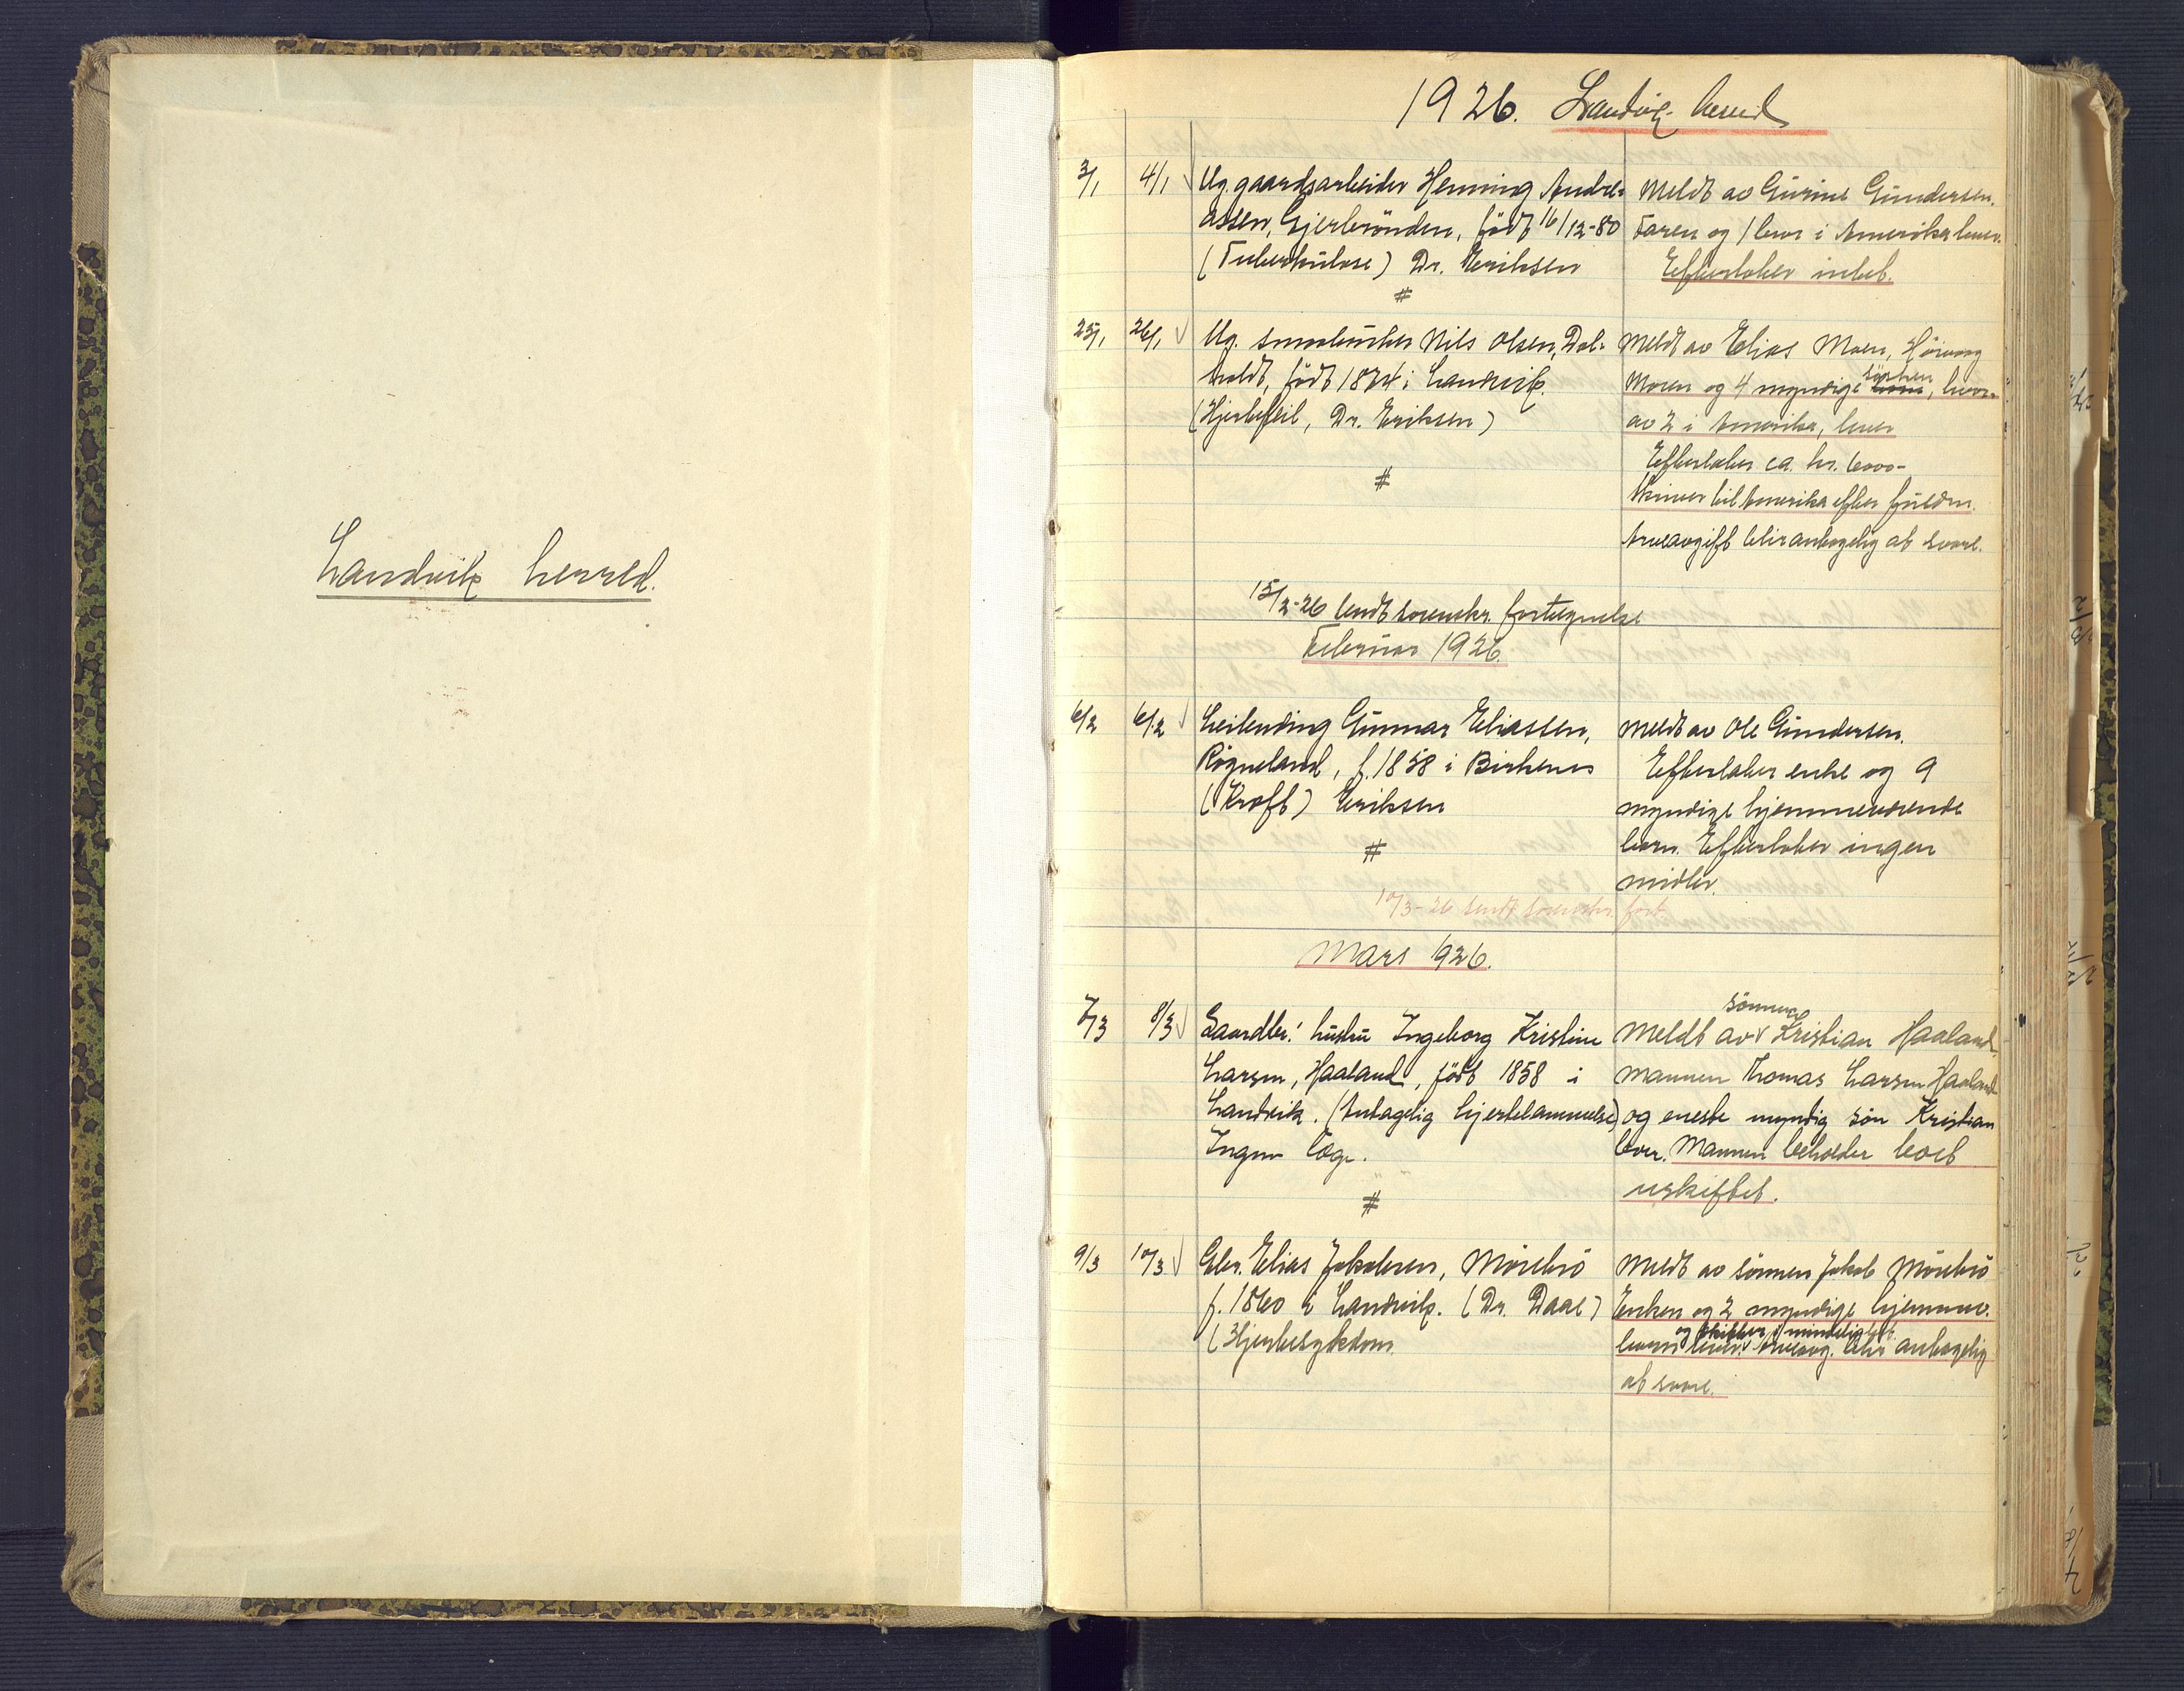 Landvik herred.
1926. Landvik herred
3/1 4/1 Ug. gaardsarbeider Henning Andre-
assen, Gjerbrønden, født 16/12-80
(Tuberkulose) Dr. Eriksen
#
Meldt av Gurine Gundersen.
Faren og 1 bror i Amerika lever.
Efterlater intet.
25/1 26/1 Ug. smaabruker Nils Olsen, Dal-
holdt, født 1874 i Landvik.
(Hjertefeil, Dr. Eriksen)
#
Meldt av Elias Moen,
Moren og 4 myndige søsken, hvor-
av 2 i Amerika, lever
Efterlater ca. kr. 6000-
Skriver til Amerika efter fuldm.
Arveavgift blir antagelig at svare.
15/2-26 sendt sorenskr. fortegnelse
Februar 1926.
6/2 6/2 Leilending Gunnar Eliassen,
Rogneland, f. 1858 i Birkenes
(Kræft) Eriksen
#
Meldt av Ole Gundersen.
Efterlater enke og 9
myndige hjemmeværende
barn. Efterlater ingen
midler.
10/3-26 sendt sorenskr. fort.
Mars 1926.
7/3 8/3 Gaardbr. hustru Ingeborg Kristine
Larsen, Haaland, født 1858 i
Landvik. (Antagelig hjertelammelse)
Ingen læge.
#
sønnen
Meldt av Kristian Haaland.
Mannen Thomas Larsen Haaland
og eneste myndig søn Kristian
lever. Mannen beholder boet
uskiftet.
9/3 10/3 Gbr. Elias Jakobsen, Morebrö
f. 1860 i Landvik. (Dr. Daae)
(Hjertesykdom
Meldt av sønnen Jakob Morebrö
Enken og 2 myndige hjemmev.
og skifter i mindelighet.
barn lever. Arveavg. blir antagelig
at svare.